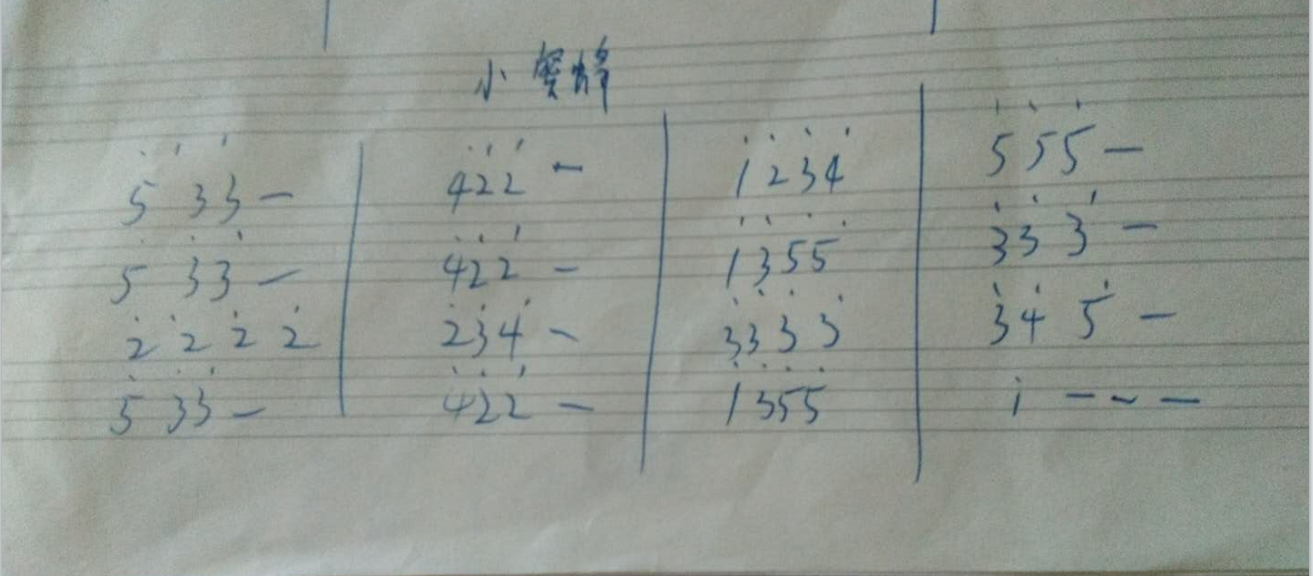 小蜜蜂
5̇ 3̇ 3̇ — | 4̇ 2̇ 2̇ — | 1̇ 2̇ 3̇ 4̇ | 5̇ 5̇ 5̇ —
5̇ 3̇ 3̇ — | 4̇ 2̇ 2̇ — | 1̇ 3̇ 5̇ 5̇ | 3̇ 3̇ 3̇ —
2̇ 2̇ 2̇ 2̇ | 2̇ 3̇ 4̇ — | 3̇ 3̇ 3̇ 3̇ | 3̇ 4̇ 5̇ —
5̇ 3̇ 3̇ — | 4̇ 2̇ 2̇ — | 1̇ 3̇ 5̇ 5̇ | 1̇ — — —